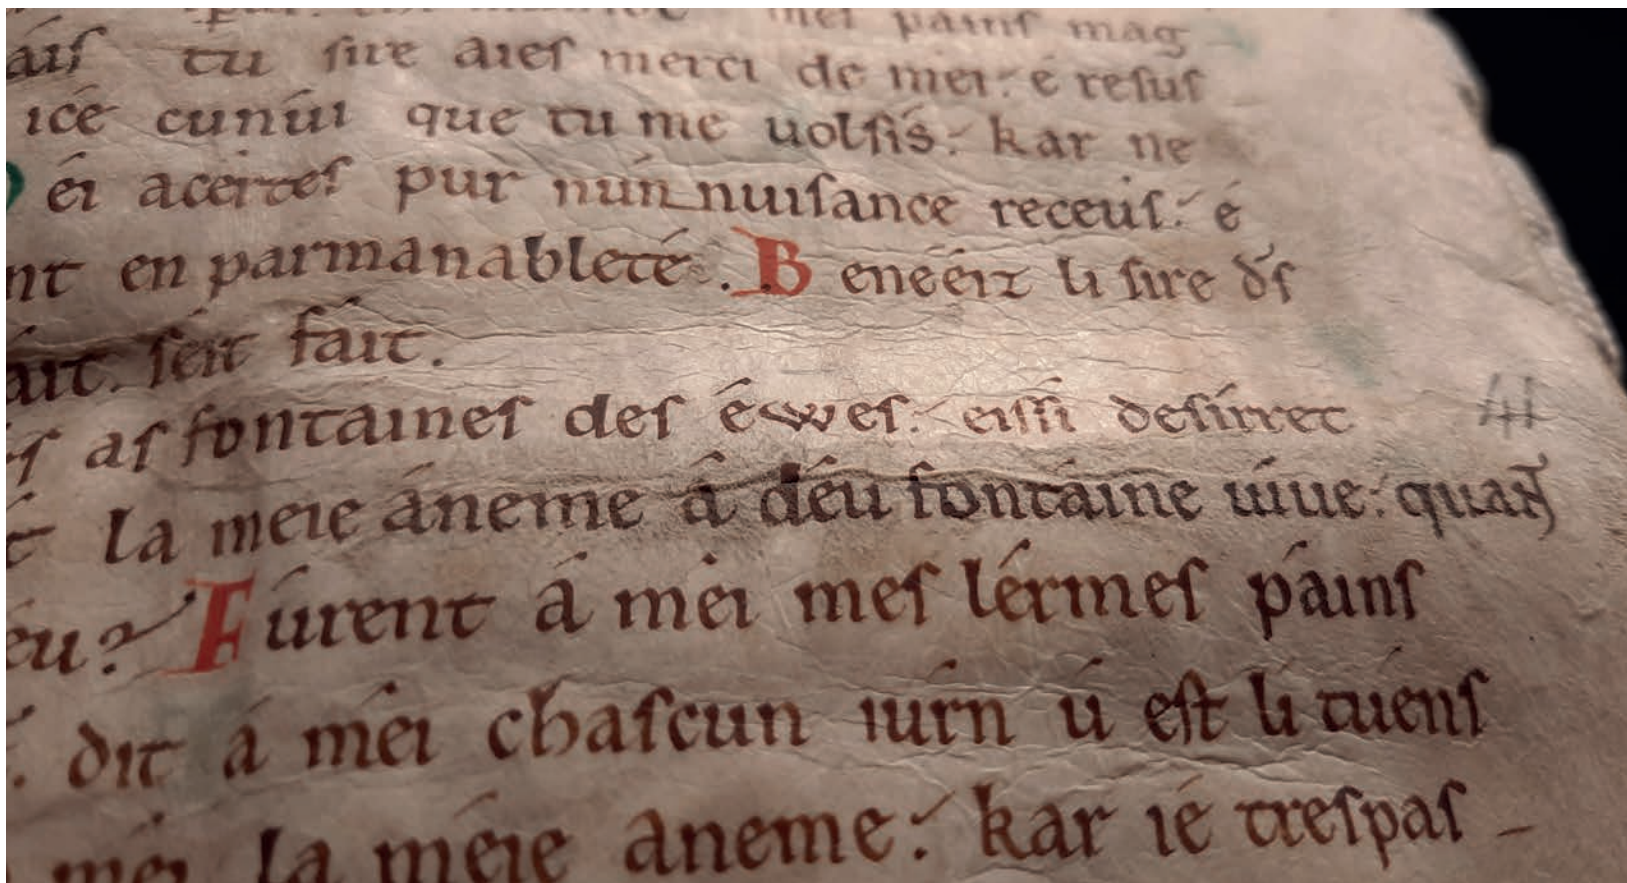 mei painſ mag
aiſ tu ſire aieſ merci de mei: é reſuſ
icé cunúi que tu me uolſis: kar ne
éi acerteſ pur nún nuiſance receuſ: é
nt en parmanableté. Beneéit li ſire d́ſ
áit. ſeit fait.
ſ aſ fontaineſ deſ éweſ: eiſſi deſirret 41
la meie áneme á déu fontáine uíue: quant
éu? Fúrent á méi meſ lérmeſ páinſ
. dit á méi chaſcun iúrn ú eſt li tuenſ
méi la méie aneme: kar ié treſpaſ-